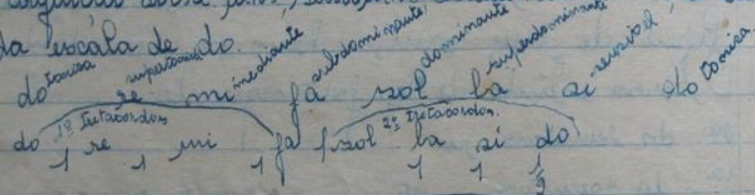 da escála de do.
do tonica re supertonica mi mediante fá subdominante sol dominante la superdominante si sensivel do tonica.
1º Tetracordon 2º Tetracordon.
do re mi fa sol la si do
1 1 1 1 1 1 1/2